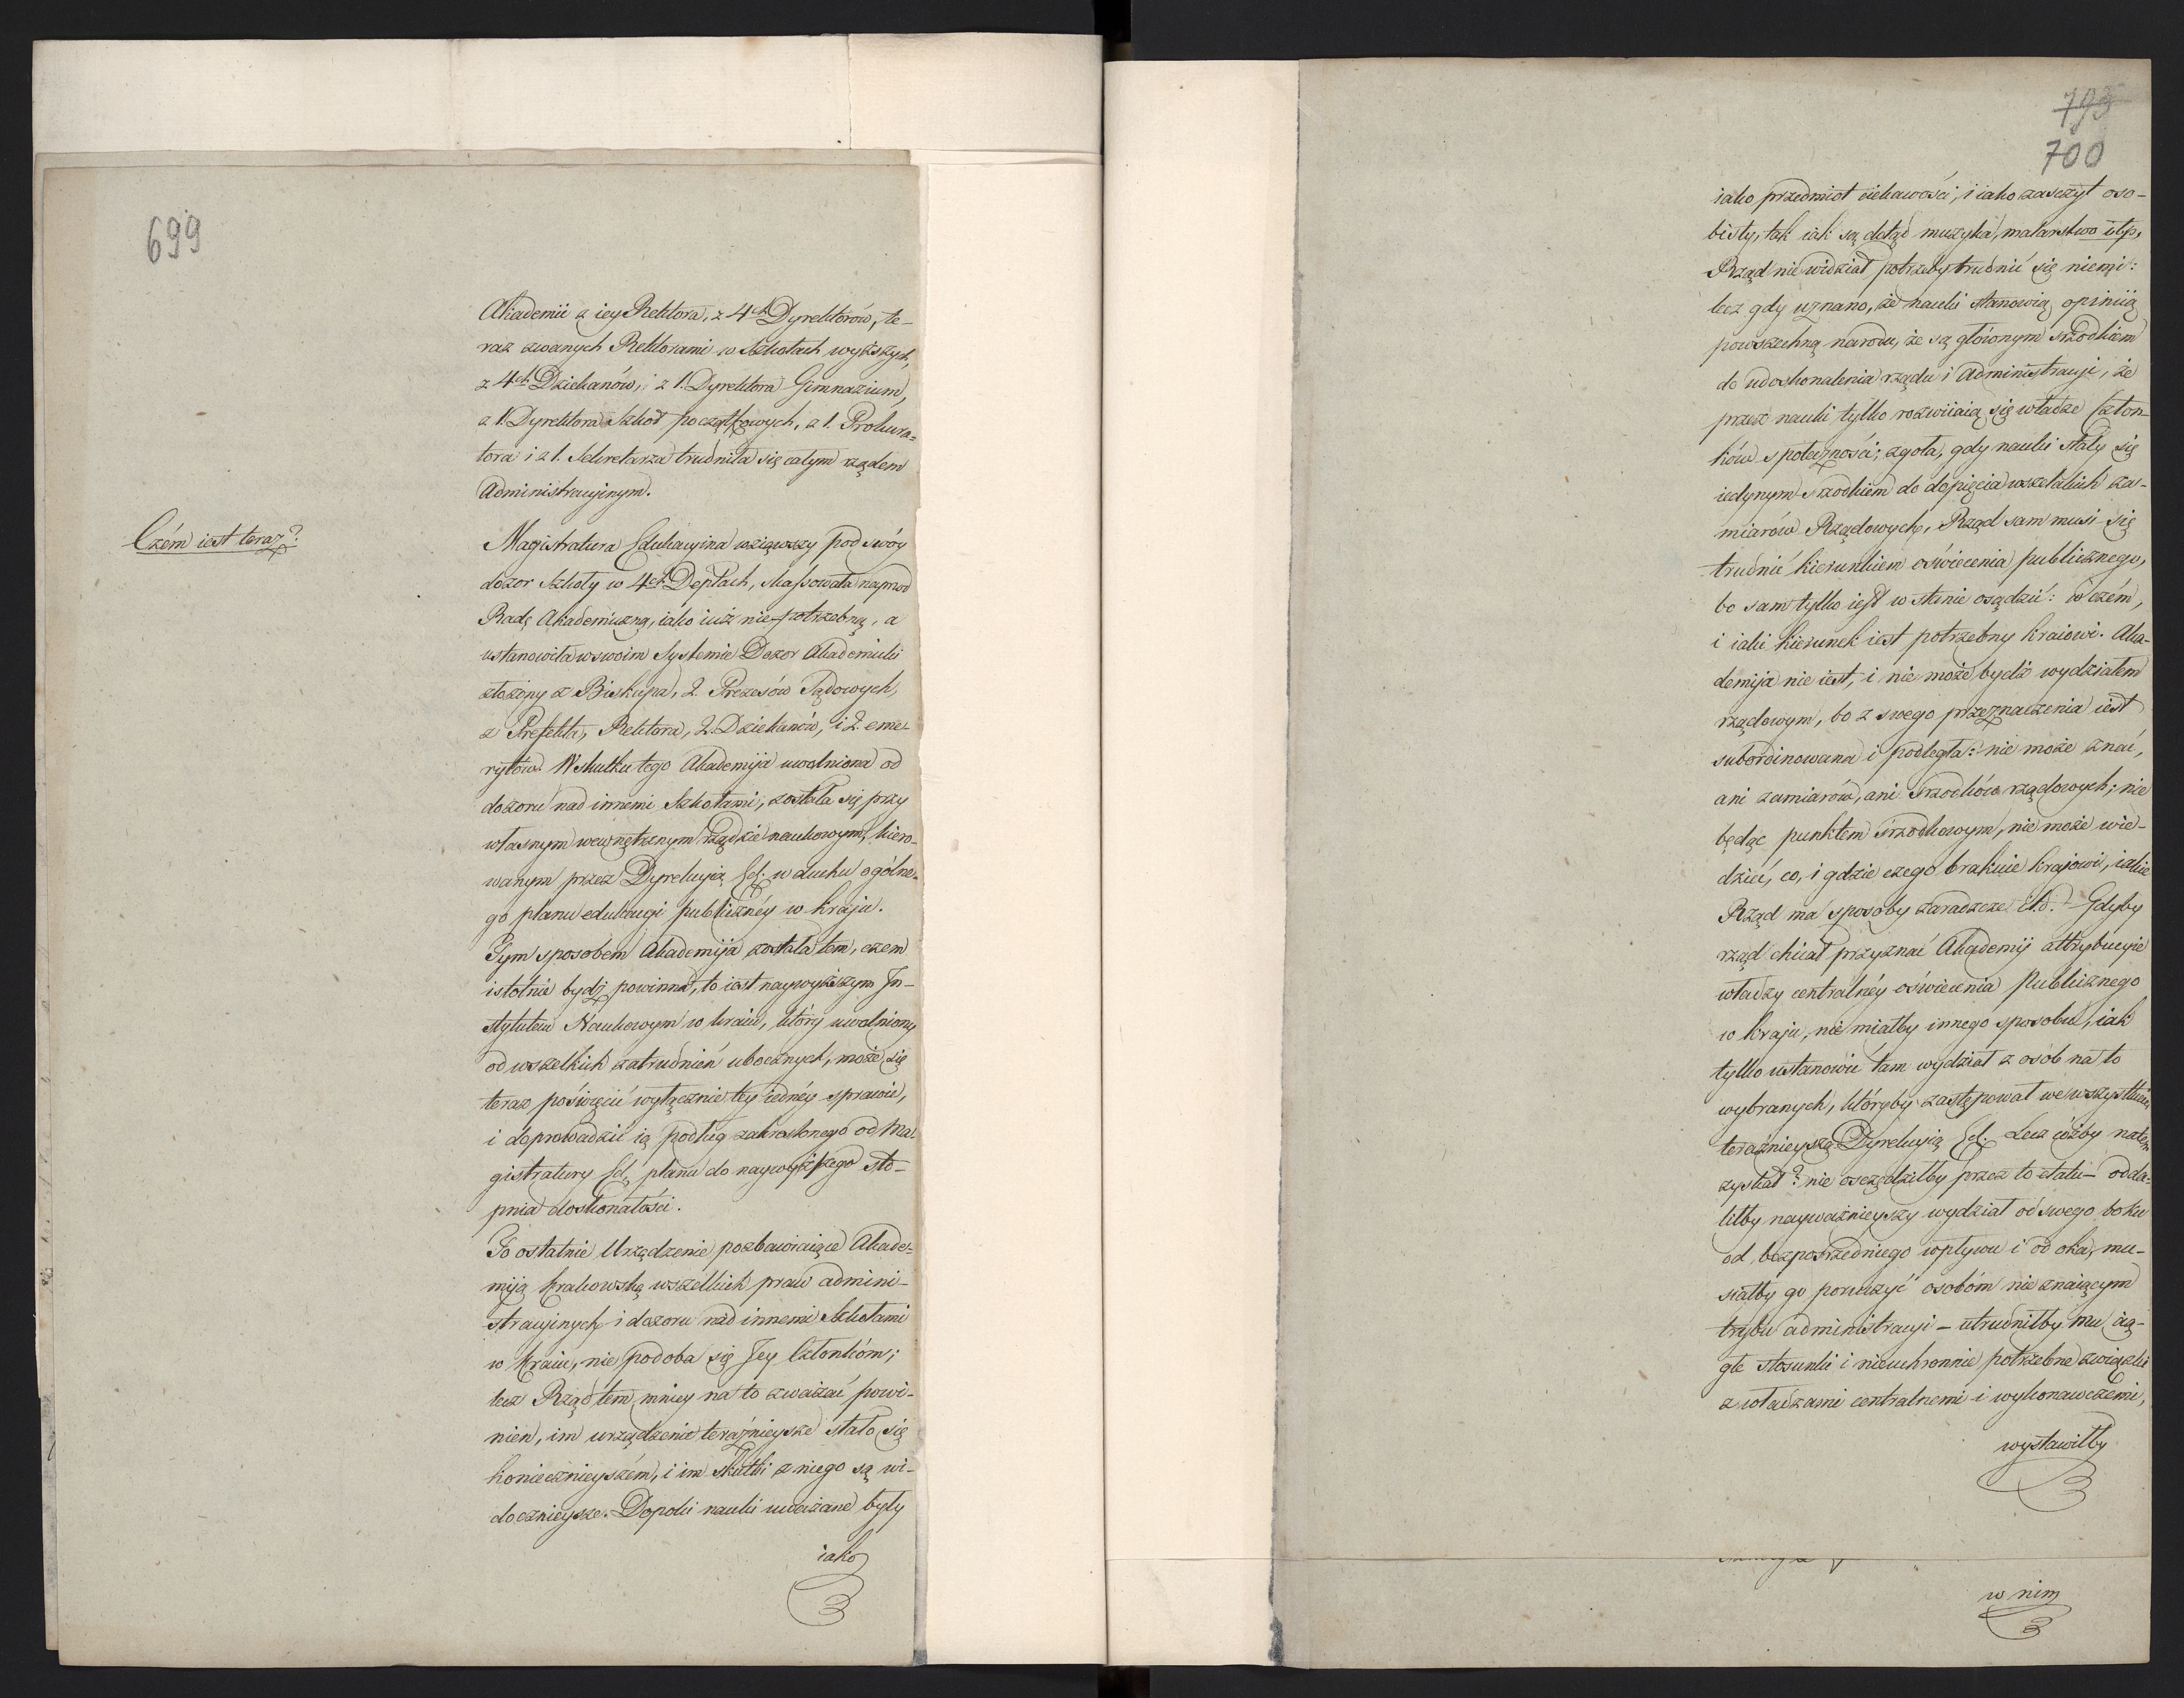 699
Akademii z iey Rektora, z 4ch Dyrektorów, te-
raz zwanych Rektorami w Szkołach wyższych,
z 4ch Dziekanów, i z 1. Dyrektora Gimnazium,
z 1. Dyrektora Szkoł początkowych, z 1. Prokura-
tora i z 1. Sekretarza trudniła się całym rządem
Administracyjnym.
Czém iest teraz?
Magistratura Edukacyina wziąwszy pod swóy
dozor Szkoły w 4ch Deptach, skassowała naprzod
Radę Akademiczną, iako iuż niepotrzebną, a
ustanowiła w swoim Systemie Dozor Akademicki
złożony z Biskupa, 2. Prezesów Sądowych,
z Prefekta, Rektora, 2. Dziekanów, i 2. eme-
rytów. W skutku tego Akademija uwolniona od
dozoru nad innemi Szkołami, została się przy
własnym wewnętrznym rządzie naukowym, kiero-
wanym przez Dyrekcyią Ed: w duchu ogólne-
go planu edukacyi publicznéy w kraju.
Tym sposobem Akademija została tem, czem
istotnie bydź powinna, to iest naywyższym In-
stytutem Naukowym w kraiu, który uwolniony
od wszelkich zatrudnień ubocznych, może się
teraz poświęcić wyłącznie tey iednéy sprawie,
i doprowadzić ią podług zakreslonego od Ma-
gistratury Ed: planu do naywyższego sto-
pnia doskonałości.
To ostatnie Urządzenie pozbawiaiące Akade-
miją Krakowską wszelkich praw admini-
stracyjnych i dozoru nad innemi Szkołami
w Kraiu, nie podoba się Jey Członkóm;
lecz Rząd tém mniey na to zważać powi-
nien, im urządzenie teraźnieysze stało się
koniecznieyszém, i im skutki z niego są wi-
docznieysze. Dopoki nauki uważane były
iako
793
700
iako przedmiot ciekawości, i iako zaszczyt oso-
bisty, tak iak są dotąd muzyka, malarstwo itp,
Rząd nie widział potrzeby trudnić się niemi:
lecz gdy uznano, że nauki stanowią opiniią
powszechną narodu, że są głównym środkiem
do udoskonalenia rządu i Administracyi, że
przez nauki tylko rozwiiaią się władze człon-
ków społeczności; zgoła, gdy nauki stały się
iedynym srzodkiem do dopięcia wszelakich za-
miarów Rządowych, Rząd sam musi się
trudnić kierunkiem oświecenia publicznego,
bo sam tylko iest w stanie osądzić: w czém,
i iaki kierunek iest potrzebny kraiowi. Aka-
demija nie iest, i nie może bydź wydziałem
rządowym, bo z swego przeznaczenia iest
subordinowana i podległa: nie może znać,
ani zamiarów, ani srzodków rządowych; nie
będąc punktem srzodkowym, nie może wie-
dzieć, co, i gdzie czego brakuie krajowi, iakie
Rząd ma sposoby zaradcze itd. Gdyby
rząd chciał przyznać Akademij attrybucyie
władzy centralnéy oświecenia Publicznego
w kraju, nie miałby innego sposobu, iak
tylko ustanowić tam wydział z osób na to
wybranych, któryby zastępował we wszystkiem
teraźnieyszą Dyrekcyią Ed: Lecz cóżby natem
zyskał? nie oszczędziłby przez to etatu – odda-
liłby nayważnieyszy wydział od swego boku
od bezpośrzedniego wpływu i od oka, mu-
siałby go poruczyć osobóm nieznaiącym
trybu administracyi – utrudniłby mu cią-
głe stosunki i nieuchronnie potrzebne związki
z władzami centralnemi i wykonawczemi,
wystawiłby
w nim